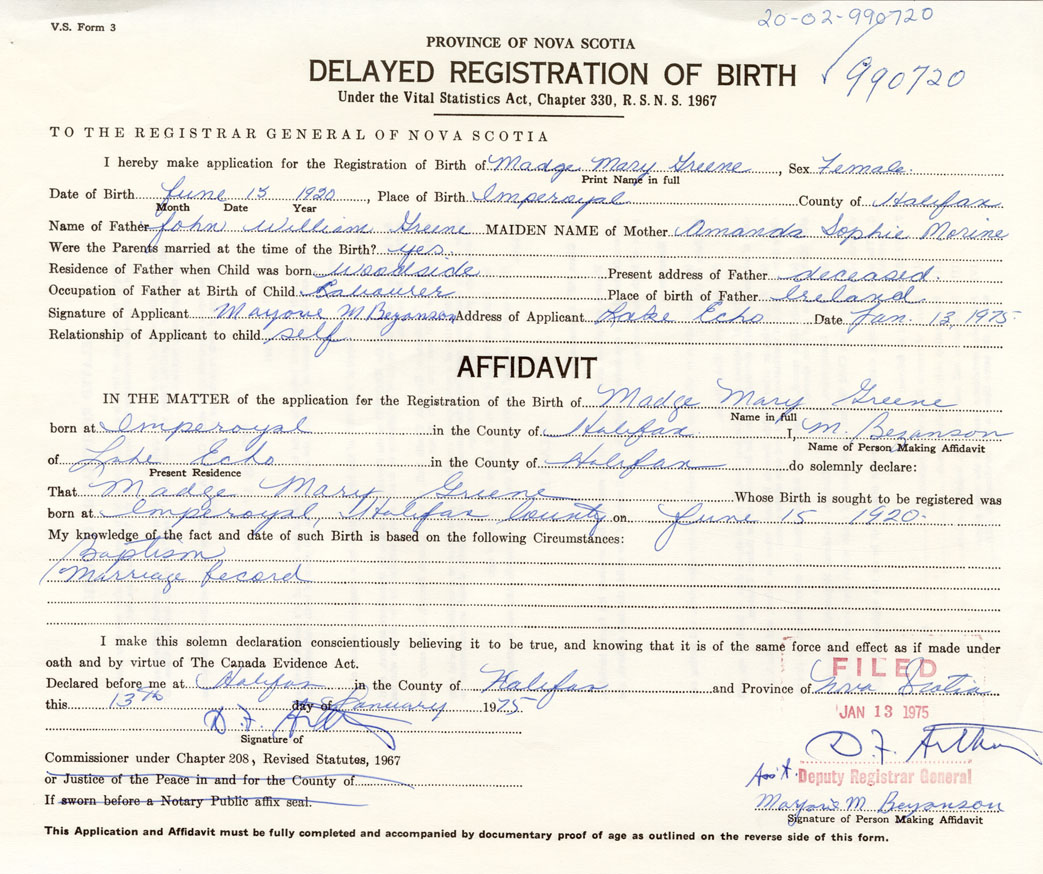 V.S. Form 3
20-02-990720
PROVINCE OF NOVA SCOTIA
DELAYED REGISTRATION OF BIRTH
990720
Under the Vital Statistics Act, Chapter 330, R.S.N.S. 1967
TO THE REGISTRAR GENERAL OF NOVA SCOTIA
I hereby make application for the Registration of Birth of Madge Mary Greene, Sex Female.
Print Name in full
Date of Birth June 15 1920, Place of Birth Imperoyal County of Halifax
Month Date Year
Name of Father John William Greene MAIDEN NAME of Mother Amanda Sophie Morine
Were the Parents married at the time of the Birth? yes
Residence of Father when Child was born Woodside Present address of Father deceased.
Occupation of Father at Birth of Child Labourer Place of birth of Father Ireland
Signature of Applicant Marjorie M Bezanson Address of Applicant Lake Echo Date Jan. 13, 1975
Relationship of Applicant to child self
AFFIDAVIT
IN THE MATTER of the application for the Registration of the Birth of Madge Mary Greene
Name in full
born at Imperoyal in the County of Halifax I, M. Bezanson
Name of Person Making Affidavit
of Lake Echo in the County of Halifax do solemnly declare:
Present Residence
That Madge Mary Greene Whose Birth is sought to be registered was
born at Imperoyal, Halifax County on June 15 1920.
My knowledge of the fact and date of such Birth is based on the following Circumstances:
Baptism
Marriage Record
I make this solemn declaration conscientiously believing it to be true, and knowing that it is of the same force and effect as if made under
oath and by virtue of The Canada Evidence Act.
FILED
Declared before me at Halifax in the County of Halifax and Province of Nova Scotia
this 13th day of January 1975
JAN 13 1975
D. F. Arthur
Signature of
D. F. Arthur
Commissioner under Chapter 208, Revised Statutes, 1967
or Justice of the Peace in and for the County of
Ass't. Deputy Registrar General
If sworn before a Notary Public affix seal.
Marjorie M Bezanson
Signature of Person Making Affidavit
This Application and Affidavit must be fully completed and accompanied by documentary proof of age as outlined on the reverse side of this form.